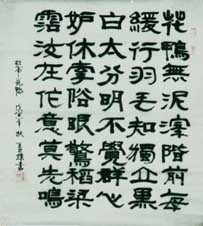 花鴨無泥滓階前每
緩行羽毛知獨立黑
白太分明不覺群心
妒休牽俗眼驚稻梁
霑汝在作意莫先鳴
杜甫花鴨 戊寅年秋 書